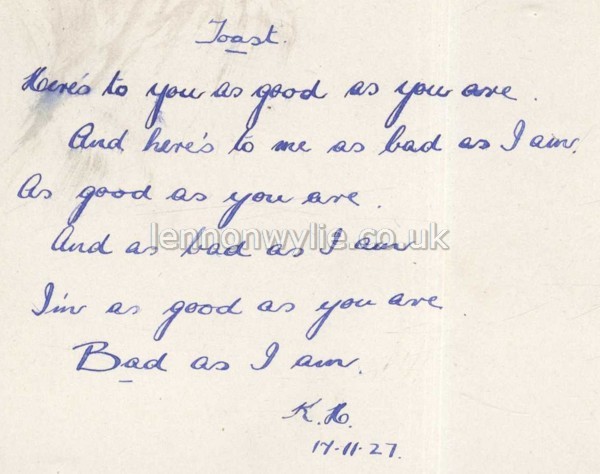 Toast.
Here's to you as good as you are.
And here's to me as bad as I am.
As good as you are.
And as bad as I am
I'm as good as you are
Bad as I am.
K.H.
17.11.27.
lennonwylie.co.uk